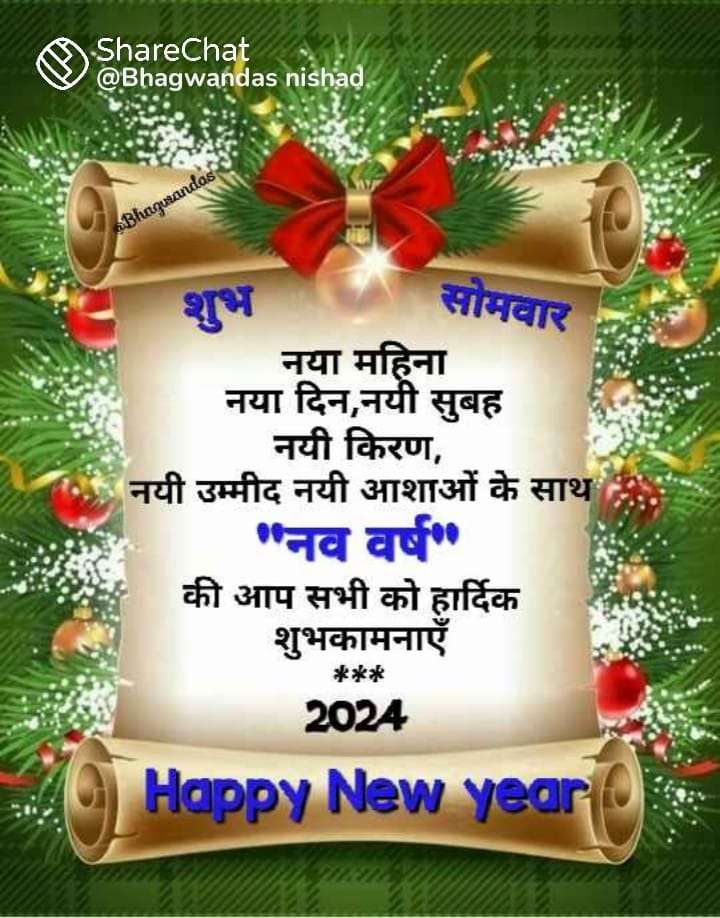 ShareChat
@Bhagwandas nishad
@Bhagwandas
शुभ सोमवार
नया महिना
नया दिन,नयी सुबह
नयी किरण,
नयी उम्मीद नयी आशाओं के साथ
"नव वर्ष"
की आप सभी को हार्दिक
शुभकामनाएँ
***
2024
Happy New year